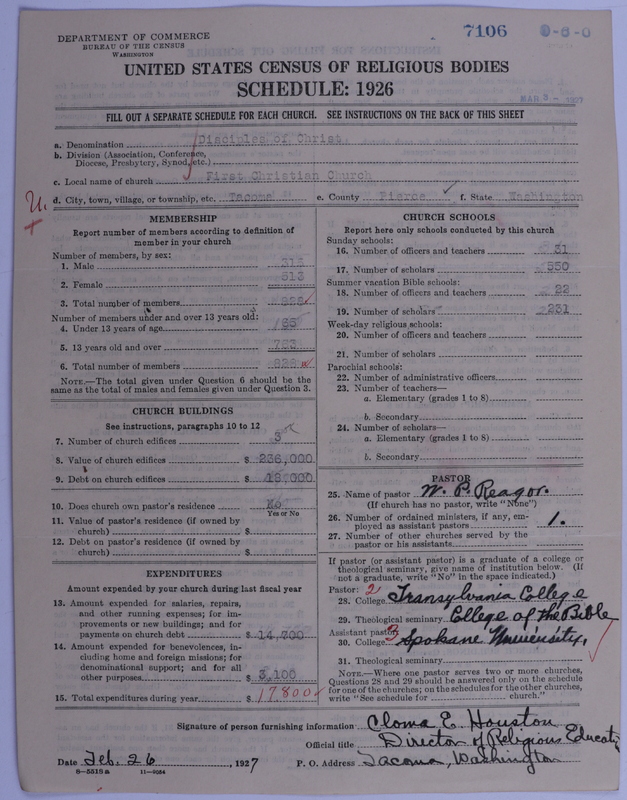 DEPARTMENT OF COMMERCE
BUREAU OF THE CENSUS
WASHINGTON
7106 0-6-0
UNITED STATES CENSUS OF RELIGIOUS BODIES
SCHEDULE: 1926
MAR 3 - 1927
FILL OUT A SEPARATE SCHEDULE FOR EACH CHURCH. SEE INSTRUCTIONS ON THE BACK OF THIS SHEET
a. Denomination Disciples of Christ
b. Division (Association, Conference,
Diocese, Presbytery, Synod, etc.)
c. Local name of church First Christian Church
d. City, town, village, or township, etc. Tacoma e. County Pierce f. State Washington
MEMBERSHIP
Report number of members according to definition of
member in your church
Number of members, by sex:
1. Male 315
2. Female 513
3. Total number of members 828
Number of members under and over 13 years old:
4. Under 13 years of age
5. 13 years old and over
6. Total number of members 828
NOTE.—The total given under Question 6 should be the
same as the total of males and females given under Question 3.
CHURCH BUILDINGS
See instructions, paragraphs 10 to 12
7. Number of church edifices 3
8. Value of church edifices $ 236,000
9. Debt on church edifices $
10. Does church own pastor's residence No
Yes or No
11. Value of pastor's residence (if owned by
church) $
12. Debt on pastor's residence (if owned by
church) $
EXPENDITURES
Amount expended by your church during last fiscal year
13. Amount expended for salaries, repairs,
and other running expenses; for im-
provements or new buildings; and for
payments on church debt $ 14,700
14. Amount expended for benevolences, in-
cluding home and foreign missions; for
denominational support; and for all
other purposes $ 3,100
15. Total expenditures during year $ 17800
CHURCH SCHOOLS
Report here only schools conducted by this church
Sunday schools:
16. Number of officers and teachers 51
17. Number of scholars 550
Summer vacation Bible schools:
18. Number of officers and teachers 22
19. Number of scholars 231
Week-day religious schools:
20. Number of officers and teachers
21. Number of scholars
Parochial schools:
22. Number of administrative officers
23. Number of teachers—
a. Elementary (grades 1 to 8)
b. Secondary
24. Number of scholars—
a. Elementary (grades 1 to 8)
b. Secondary
PASTOR
25. Name of pastor W. P. Reagor.
(If church has no pastor, write "None")
26. Number of ordained ministers, if any, em-
ployed as assistant pastors 1.
27. Number of other churches served by the
pastor or his assistants
If pastor (or assistant pastor) is a graduate of a college or
theological seminary, give name of institution below. (If
not a graduate, write "No" in the space indicated.)
Pastor: 2
28. College Transylvania College
29. Theological seminary College of the Bible
Assistant pastor: 3
30. College Spokane University,
31. Theological seminary
NOTE.—Where one pastor serves two or more churches,
Questions 28 and 29 should be answered only on the schedule
for one of the churches; on the schedules for the other churches,
write "See schedule for church."
Signature of person furnishing information Cloma E. Houston
Official title Director of Religious Educati
Date Feb. 26, 1927 P. O. Address Tacoma, Washington
8—5518a 11—9054